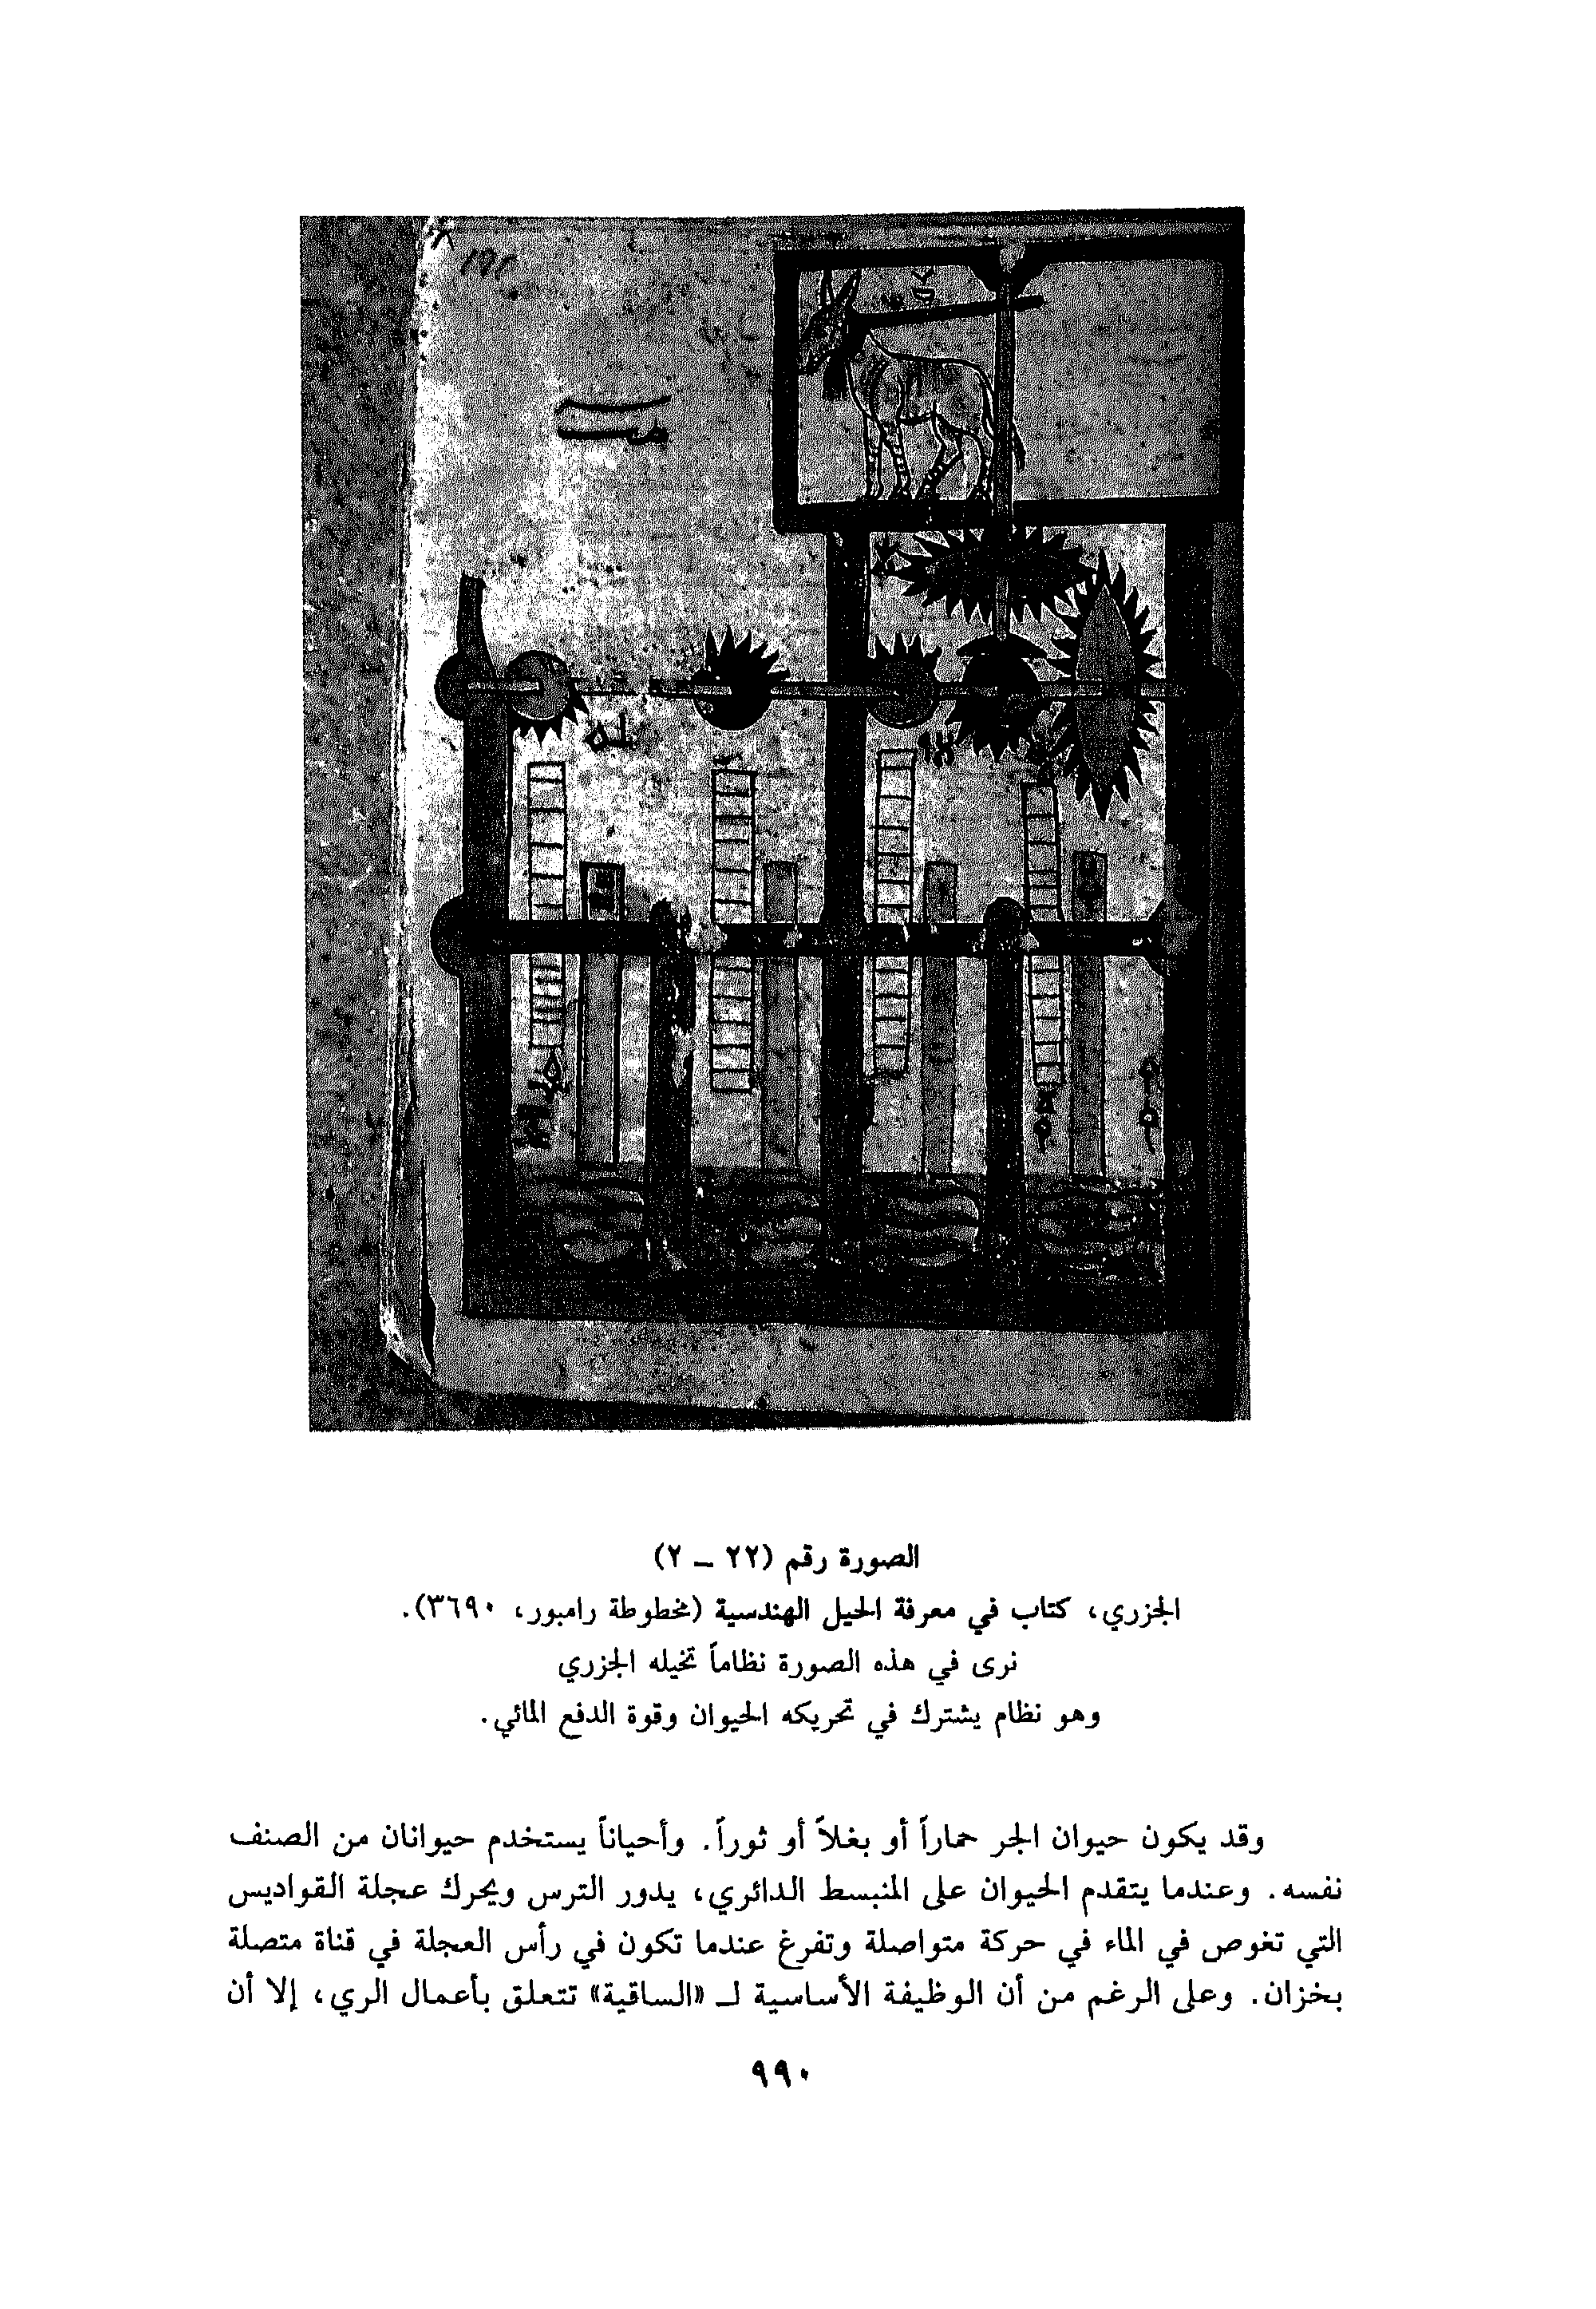 الصورة رقم (٢٢ – ٢)
الجزري، كتاب في معرفة الحيل الهندسية (مخطوطة رامبور، ٣٦٩٠).
نرى في هذه الصورة نظاماً تخيله الجزري
وهو نظام يشترك في تحريكه الحيوان وقوة الدفع المائي.
وقد يكون حيوان الجر حماراً أو بغلاً أو ثوراً. وأحياناً يستخدم حيوانان من الصنف
نفسه. وعندما يتقدم الحيوان على المنبسط الدائري، يدور الترس ويحرك عجلة القواديس
التي تغوص في الماء في حركة متواصلة وتفرغ عندما تكون في رأس العجلة في قناة متصلة
بخزان. وعلى الرغم من أن الوظيفة الأساسية لـ «الساقية» تتعلق بأعمال الري، إلا أن
٩٩٠